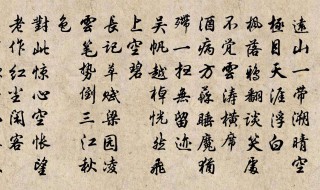 遠山一帶溯晴空
極目天涯浮白
楓落鴉翻談笑處
不覺雲濤橫席
酒病方蘇睡魔猶
殢一掃無留跡
吳帆越棹恍然飛
上空碧
長記草梁園凌
雲筆勢倒三江秋
色
對此驚心空悵望
老作紅塵閑客